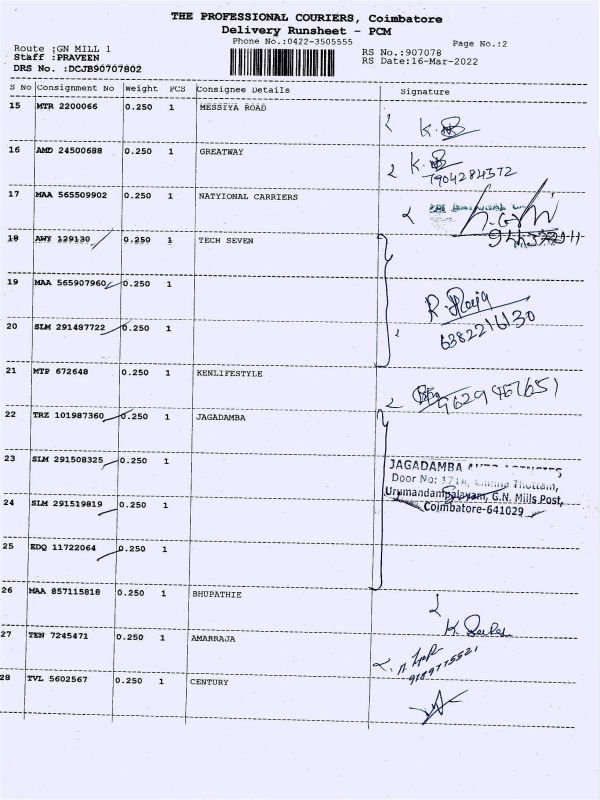 THE PROFESSIONAL COURIERS, Coimbatore
Delivery Runsheet - PCM
Phone No.:0422-3505555
Page No.:2
Route :GN MILL 1
RS No.:907078
Staff :PRAVEEN
RS Date:16-Mar-2022
DRS No. :DCJB90707802
S No Consignment No Weight PCS Consignee Details Signature
15 MTR 2200066 0.250 1 MESSIYA ROAD
K.
16 AMD 24500688 0.250 1 GREATWAY
K.
7904284372
17 MAA 565509902 0.250 1 NATYIONAL CARRIERS
18 AWY 129130 0.250 1 TECH SEVEN
19 MAA 565907960 0.250 1
R. Raja
6382216130
20 SLM 291487722 0.250 1
21 MTP 672648 0.250 1 KENLIFESTYLE
9629467651
22 TRZ 101987360 0.250 1 JAGADAMBA
23 SLM 291508325 0.250 1
JAGADAMBA
Door No: 171A, Thottam,
Urumandampalayam, G.N. Mills Post,
Coimbatore-641029
24 SLM 291519819 0.250 1
25 EDQ 11722064 0.250 1
26 MAA 857115818 0.250 1 BHUPATHIE
K
27 TEN 7245471 0.250 1 AMARRAJA
9789775521
28 TVL 5602567 0.250 1 CENTURY